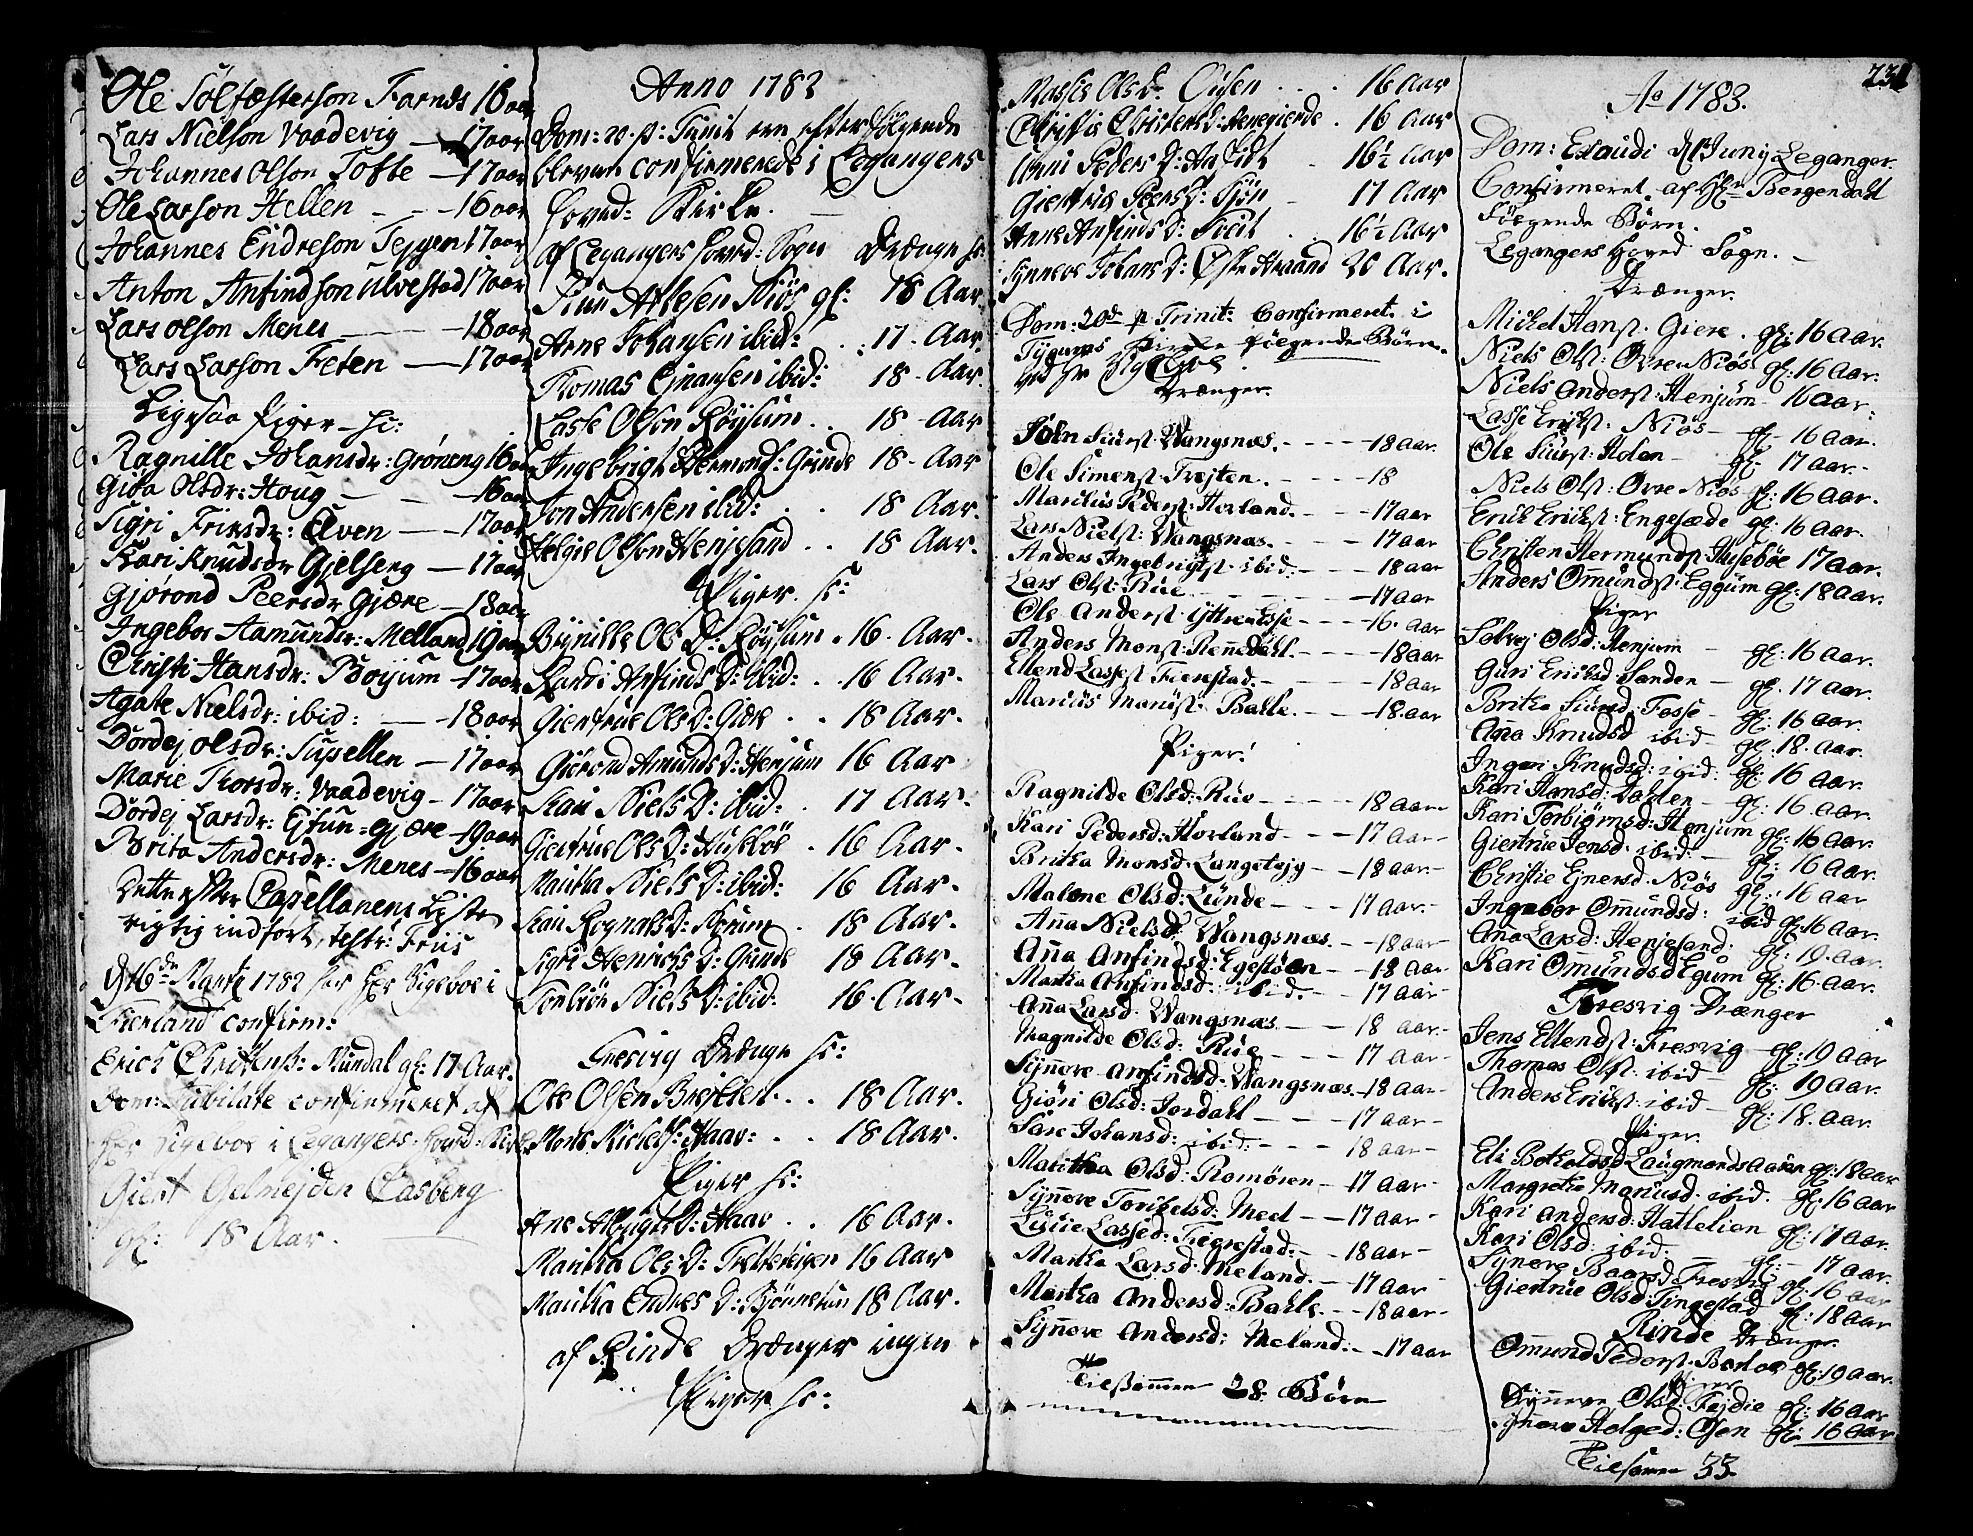 Ole Sölfæsterson Farnes 16 aar
Lars Nielson Vaadevig — 17 aar
Johannes Olson Tofte — 17 aar
Ole Larson Hellen — — 16 aar
Johannes Endreson Tejgen 17 aar
Anton Anfindson Ulvestad 17 aar
Lars Olson Menes — — 18 aar
Lars Larson Feten — 17 aar
Ligesaa Piger — sc:
Ragnille Johansdr: Grøneng 16 aar
Gida Olsdr: Houg — — 16 aar
Sigri Friksdr: Elven — 17 aar
Kari Knudsdr Gjelseng — 17 aar
Gjørond Peersdr Gjære — 18 aar
Ingebor Aamundr: Melland 19 aar
Christi Hansdr: Bøijum — 17 aar
Agate Nielsdr: ibid: — 18 aar
Dordej Olsdr: Supellen — 17 aar
Marie Thorsdr: Vaadevig — 17 aar
Dordej Larsdr: Ejtun = gjære — 19 aar
Brita Andersdr: Menes — 16 aar
Dette efter Capellanens Liste
rigtig indført, test: Friis
d 16de Martz 1782 har Hr Sigeboe i
Fierland confirm:
Erich Christensst: Mundal gl: 17 Aar.
Dom: Jubilate confirmeret af
Hr Sigeboe i Legangers Hoved: Kirke
Giert Gelmejden Casberg
gl: 18 Aar.
Anno 1782
Dom: 20. p: Trinit ere efterfølgende
blevne confirmerede i Legangers
Hoved: Kirke.
af Legangers Hoved: Sogn Drænge sc:
Atlesen Niös gl: 18 Aar.
Arne Johansen ibid: . . 17 Aar.
Thomas Ejnarsen ibid: 18 Aar.
Lasse Olsen Röysum . . 18 Aar.
Ingebrigt Hermonds: Grinde 18 Aar
Jon Andersen ibid: . . 18 Aar.
Helgie Olsen Henjesand . . 18 Aar.
Piger sc:
Brynille Ols D: Röysum . 16 Aar.
Anfinds D: ibid: . . 16 Aar.
Giertrue Ols D: Giære . . 18 Aar.
Giörond Amunds D: Henjum 16 Aar
Kari Niels D: ibid: . 17 Aar.
Giertrue Ols D: Husebøe . 16 Aar.
Maritha Niels D: ibid: 16 Aar.
Kari Rognalds D: . 18 Aar.
Sigri Henrichs D: Grinde 18 Aar.
Torbiör Niels D: ibid: 16 Aar.
Fresvig Drænge sc:
Ole Olsen Brejken . . 18 Aar.
Mons Michels: Haar: . . 18 Aar.
Piger sc:
Ane Albrigts D: Haar . . 16 Aar.
Maritha Ols: D: 16 Aar
Maritha Endres D: Björnetun 18 Aar.
af Rinde Drænger ingen
Piger sc:
Ols D: Öysen . . . 16 Aar
Christie Christens D: . 16 Aar
Unni Peders D: . 16½ Aar
Giertrue Peers D: — 17 Aar
Anne Anfinds D: . 16½ Aar
Synneve Johans D: 20 Aar.
Dom: 20de p Trinit: Confirmeret i
Tygums Kirke følgende Børn.
ved Hr Sigeboe.
Drænger.
John Siurst. Wangsnæs. — — — 18 aar.
Ole Simenst. Trejten. — — — 18
Marilius Pederst. Horland. — — 17 aar
Lars Nielst: Wangsnæs. — — 17 aar
Anders Ingebrigtst. ibid: — — 18 aar
Lars Olst: Rüe — — — 17 aar
Ole Anderst. Yttre — — — 16 aar
Anders Monst: Rennedahl. — — 18 aar
Ellend Lassest Fierestad. — — 18 aar
Marius Monüst: Bahle. — — 18 aar
Piger:
Ragnilde Olsd: Rüe — — — 18 aar
Kari Pedersd: Horland — — 17 aar —
Britha Monsd: Langetejg — — 18 aar —
Malene Olsd: Lünde — — 17 aar. —
Anna Nielsd: Wangsnæs. — 18 aar —
Anna Anfindsd: Egestöen — 18 aar —
Martha Anfindsd: ibid. — — 17 aar —
Anna Larsd. Wangsnæs — — 18 aar. —
Magnilde Olsd: Rüe — — 17 aar —
Synneve Anfindsd: Wangsnæs. — 18 aar —
Giöri Olsd: Jordahl — — — 17 aar —
Sare Johansd: ibid: — — — 18 aar —
Maritha Olsd: Romören — 17 aar —
Synneve Torkelsd: Meel — — 17 aar —
Lucie Lassed: Fierestad: — — 18 aar —
Martha Larsd: Meland. — — 17 aar —
Martha Andersd: Bahle. — — 18 aar —
Synnove Andersd: Meland: — — 17 aar
Tilsammen 28 Börn
231
Ao 1783.
Dom: Exaudi d 1 Juny Leganger.
Confirmeret af Hr Bergendahl
Følgende Børn.
Legangers Hoved Sogn. —
Drænger.
Michel Hanst. Giere . gl: 16 Aar.
Niels Olst: Övre Niös gl: 16 Aar.
Niels Anderst. Henjum — 16 aar.
Lasse Erikst. Niös — gl: 16 aar.
Ole Siurst: Holen — gl: 17 aar. —
Niels Olst: Övre Niös — gl: 16 aar.
Erik Erichst: Engesæde gl: 16 aar.
Christen Hermundst: Husebøe 17 aar.
Anders Ommundst: Eggum gl: 18 aar.
Piger
Solvej Olsd: Henjum — gl: 16 aar.
Guri Eriksd Sanden — gl. 17 aar.
Britha Siursd: Fosse — gl: 16 aar.
Anna Knudsd ibid — gl. 18. aar.
Inger Knudsd: ibid: gl: 16 aar.
Kari Hansd: Dahlen — gl: 16 aar.
Kari Torbiörnsd: Henjum gl: 16 aar.
Giertrüe Jensd. ibid: — gl: 16 aar.
Christie Ejnersd. Niös gl: 16 aar
Ingebor Ommundsd: ibid gl: 16 aar.
Anna Larsd: Henjesand: gl: 19. aar.
Kari Ommundsd Egum gl: 16 aar.
Fresvig Drænger
Jens Ellendst: Fresvig — gl: 19 aar
Thomas Olst. ibid — gl: 19 aar.
Anders Erichst. ibid — gl: 18. aar.
Piger.
Eli Botholdsd Laugmandsaasen gl: 18 aar
Margrethe Mariusd. ibid. gl: 16 aar
Kari Andersd: Hattelien gl: 17 aar.
Kari Olsd: ibid. — gl: — 17 aar.
Synove Baarsd. Fresvig gl: 16 aar
Giertrüe Olsd Tingestad gl: 18 aar
Rinde Drænger.
Ommund Pederst. gl: 19 aar.
Piger
Synneve Olsd: Fejdie gl: 16 aar
Synneve Helged: Öfsen gl: 16 aar
Tilsamen 33.